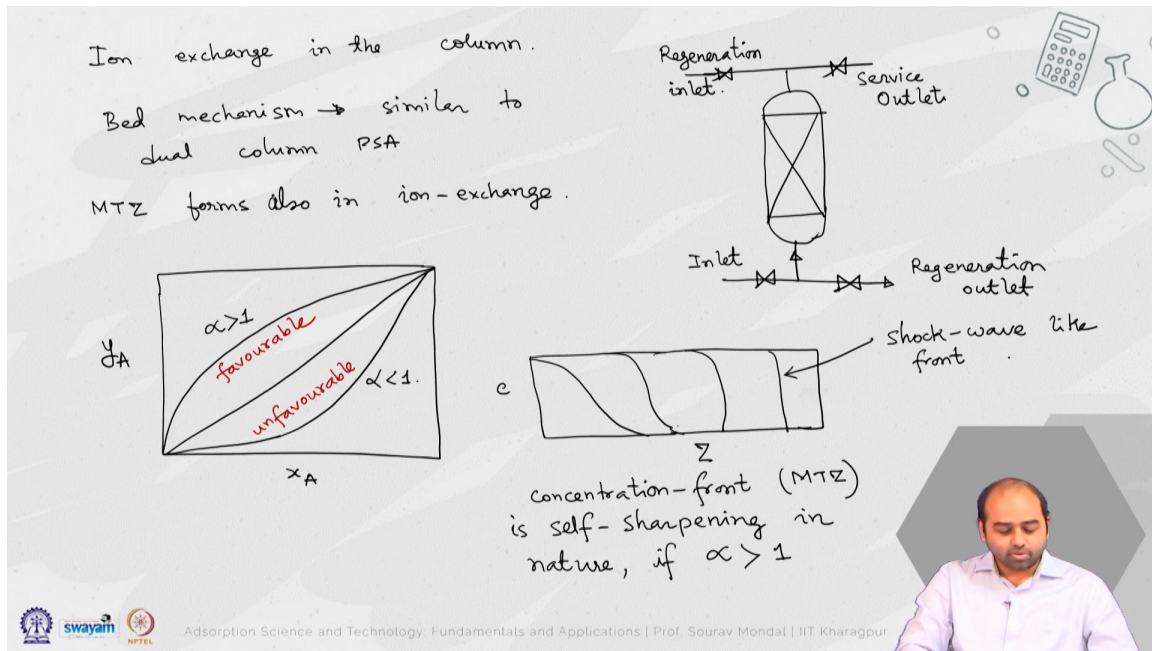 Ion exchange in the column.
Bed mechanism → similar to
dual column PSA
MTZ forms also in ion-exchange.
Regeneration
inlet.
Service
Outlet
Inlet
Regeneration
outlet
yA
α>1
favourable
unfavourable
α<1.
xA
c
shock-wave like
front.
Z
concentration-front (MTZ)
is self-sharpening in
nature, if α > 1
swayam
NPTEL
Adsorption Science and Technology: Fundamentals and Applications | Prof. Sourav Mondal | IIT Kharagpur